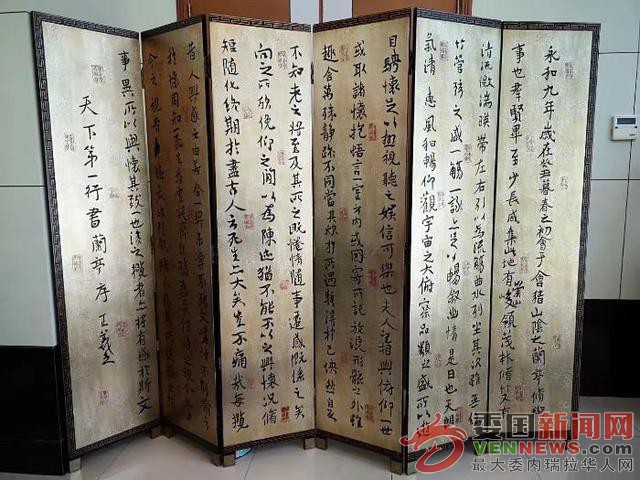 永和九年歲在癸丑暮春之初會于會稽山陰之蘭亭脩禊
事也羣賢畢至少長咸集此地有崇山峻領茂林脩竹又有
清流激湍暎帶左右引以為流觴曲水列坐其次雖無絲
竹管弦之盛一觴一詠亦足以暢敘幽情是日也天朗
氣清惠風和暢仰觀宇宙之大俯察品類之盛所以遊
目騁懷足以極視聽之娛信可樂也夫人之相與俯仰一世
或取諸懷抱悟言一室之內或因寄所託放浪形骸之外雖
趣舍萬殊靜躁不同當其欣於所遇蹔得於己快然自足
不知老之將至及其所之既惓情隨事遷感慨係之矣
向之所欣俛仰之間以為陳迹猶不能不以之興懷況脩
短隨化終期於盡古人云死生亦大矣豈不痛哉每攬
昔人興感之由若合一契未嘗不臨文嗟悼不能喻之
於懷固知一死生為虛誕齊彭殤為妄作後之視
今之視昔
事異所以興懷其致一也後之攬者亦將有感於斯文
天下第一行書蘭亭序 王羲之
委国新闻网
VENNEWS.COM
最大委内瑞拉华人网